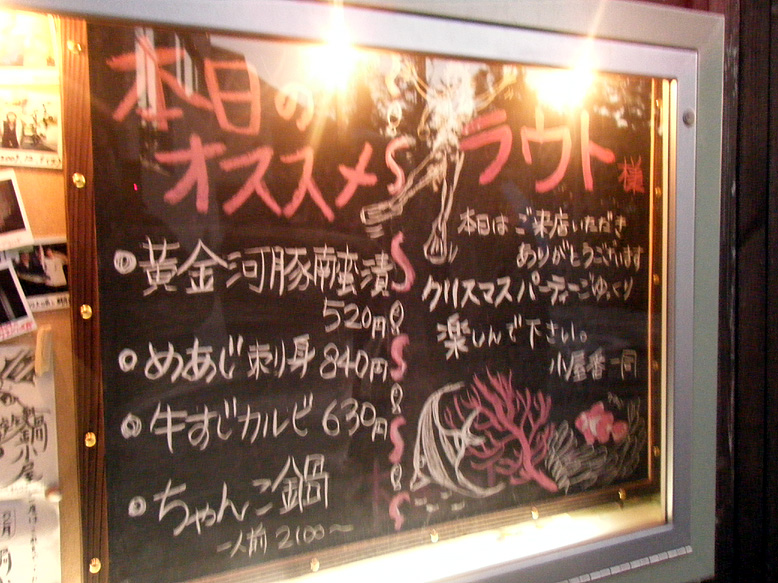 本日の
オススメ
◎黄金河豚南蛮漬
520円
◎めあじ刺身 840円
◎牛すじカルビ 630円
◎ちゃんこ鍋
一人前 2100〜
ラウト様
本日はご来店いただき
ありがとうございます
クリスマスパーティーごゆっくり
楽しんで下さい。
小屋番一同
鍋